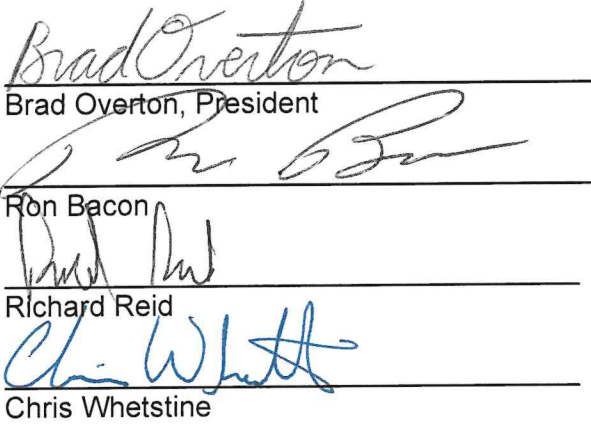 Brad Overton
Brad Overton, President
Ron Bacon
Richard Reid
Chris Whetstine